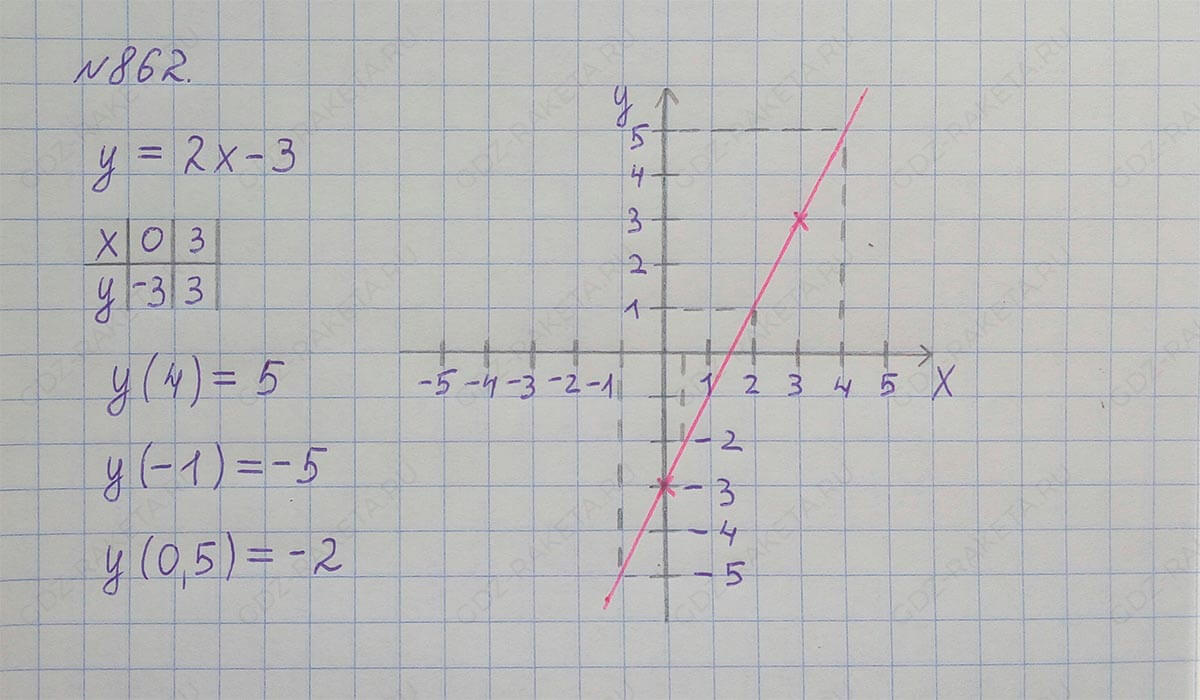 №862.
y = 2x - 3
x | 0 | 3
y | -3 | 3
y(4) = 5
y(-1) = -5
y(0,5) = -2
y
5
4
3
2
1
-5 -4 -3 -2 -1 1 2 3 4 5 X
-2
-3
-4
-5
GDZ-RAKETA.RU